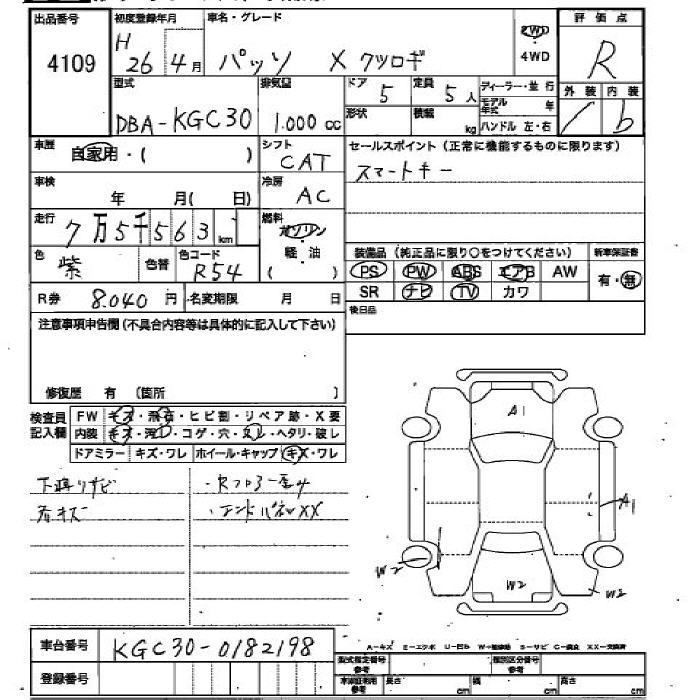 出品番号 初度登録年月 車名・グレード 評価点
4109 H 26 4月 パッソ X クツロギ 2WD ・ 4WD R
型式 排気量 ドア 定員 ディーラー・並行 外装 内装
DBA-KGC30 1.000cc 5 5人 モデル年式 年 / b
形状 積載 kg ハンドル 左・右
車歴 自家用・( ) シフト CAT セールスポイント(正常に機能するものに限ります)
車検 年 月( 日) 冷房 AC スマートキー
走行 7万5千563km 燃料 ガソリン・軽油 ( )
色 紫 色替 色コード R54 装備品(純正品に限り○をつけてください) 新車保証書
PS PW ABS エアB AW 有・無
R券 8.040円 名変期限 月 日 SR ナビ TV カワ
注意事項申告欄(不具合内容等は具体的に記入して下さい) 後日品
修復歴 有 (箇所 )
検査員記入欄 FW キズ・飛石・ヒビ割・リペア跡・X要
内装 キズ・汚レ・コゲ・穴・スレ・ヘタリ・破レ
ドアミラー キズ・ワレ ホイール・キャップ キズ・ワレ
下廻りサビ
・エンドパネXX
A1
A1
W2
W2
W2
車台番号 KGC30-0182198
A-キズ E-エクボ U-凹み S-サビ C-腐食 XX-交換済
登録番号 型式指定番号 参考 類別区分番号 参考
長さ cm 幅 cm 高さ cm